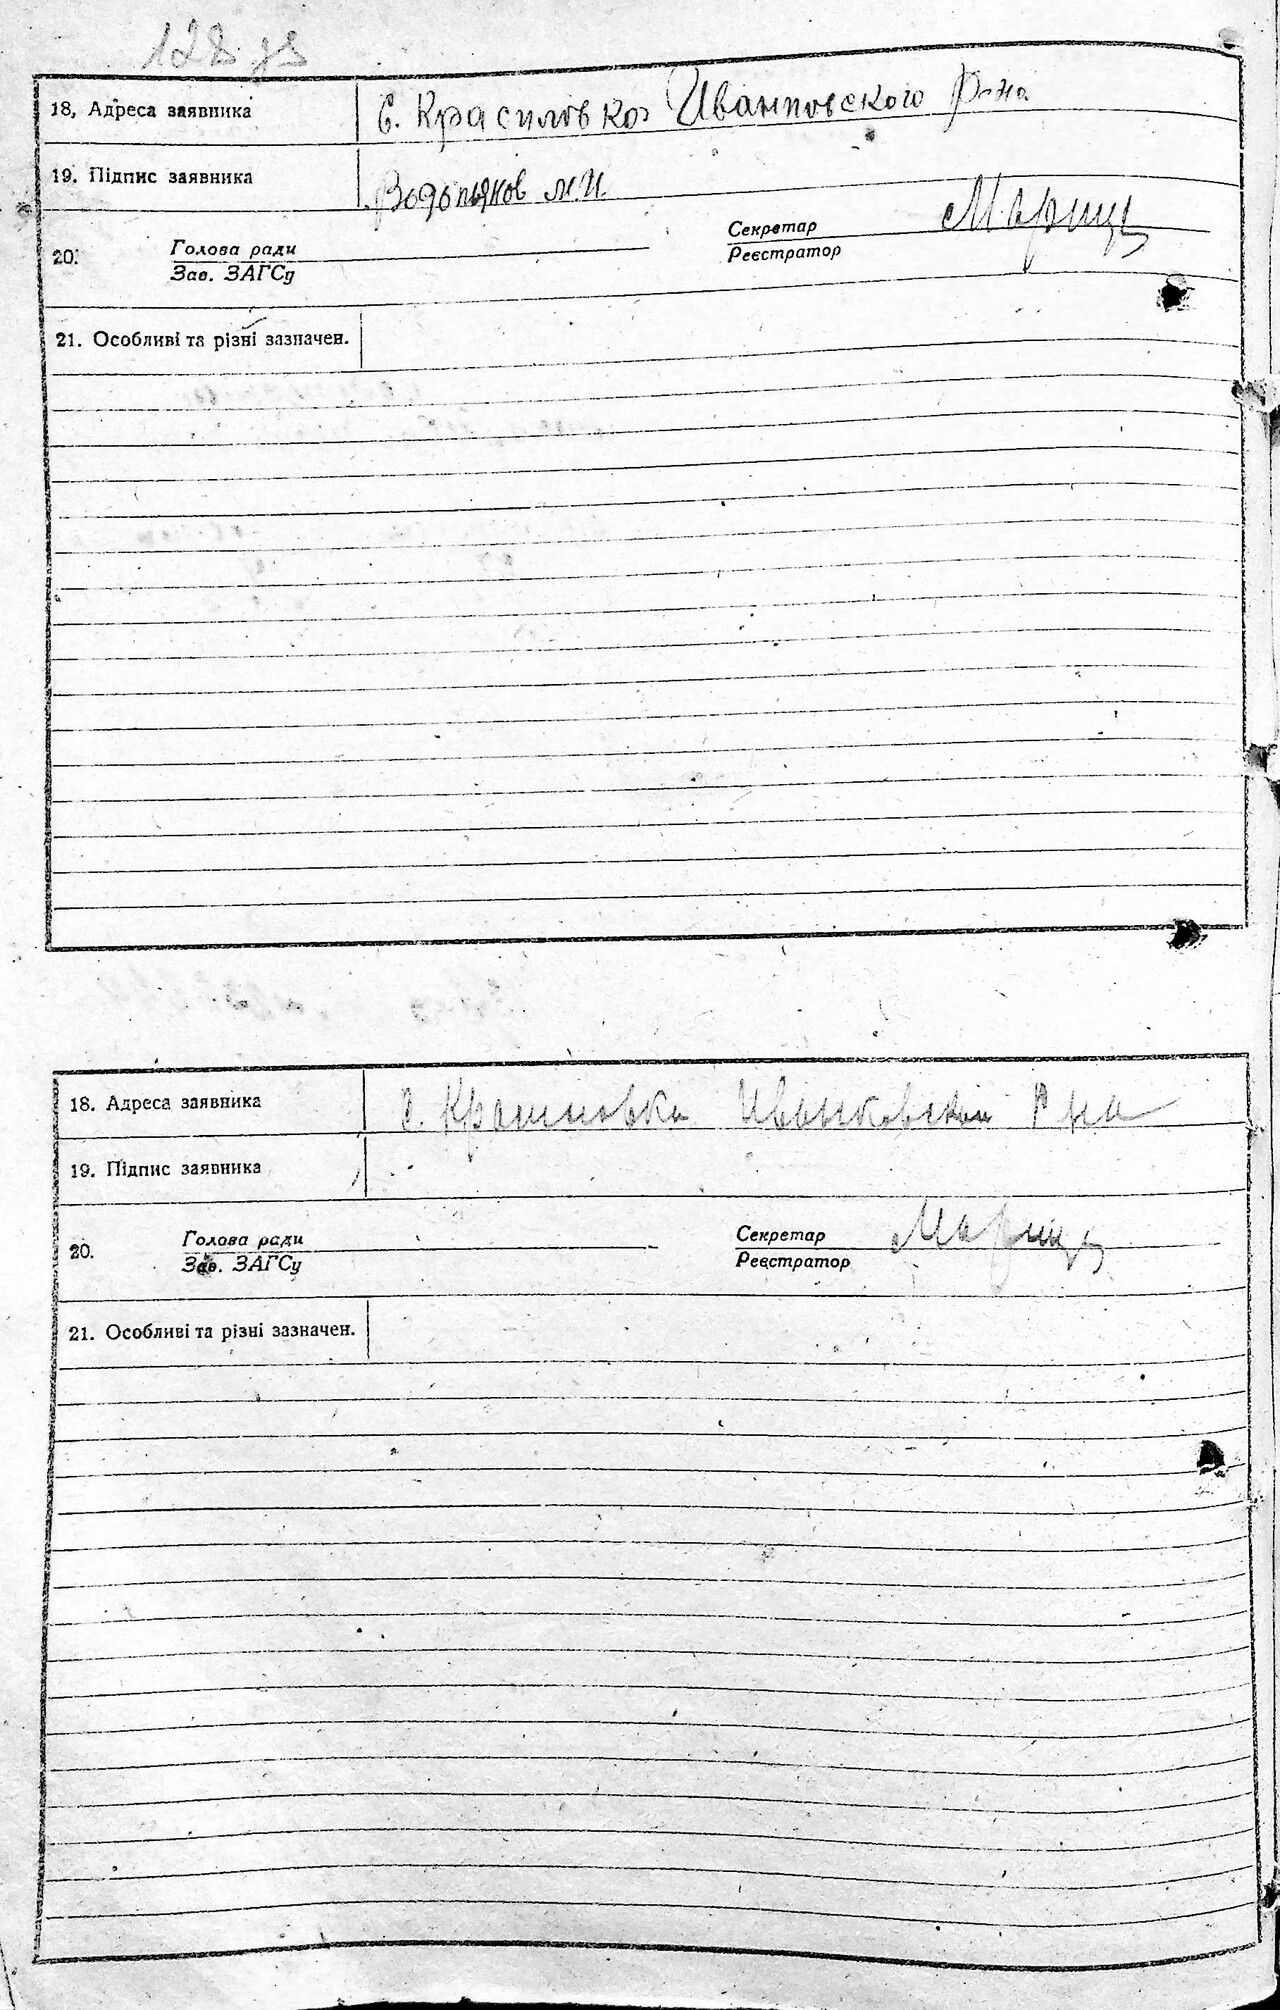 128 зв
18. Адреса заявника С. Красиловка Иванповского Р-на
19. Підпис заявника Водопьянов М.И.
20. Голова ради Секретар Мариц
Зав. ЗАГСу Реєстратор
21. Особливі та різні зазначен.
18. Адреса заявника с. Красиловка Иванковский Р на
19. Підпис заявника
20. Голова ради Секретар Мариц
Зав. ЗАГСу Реєстратор
21. Особливі та різні зазначен.